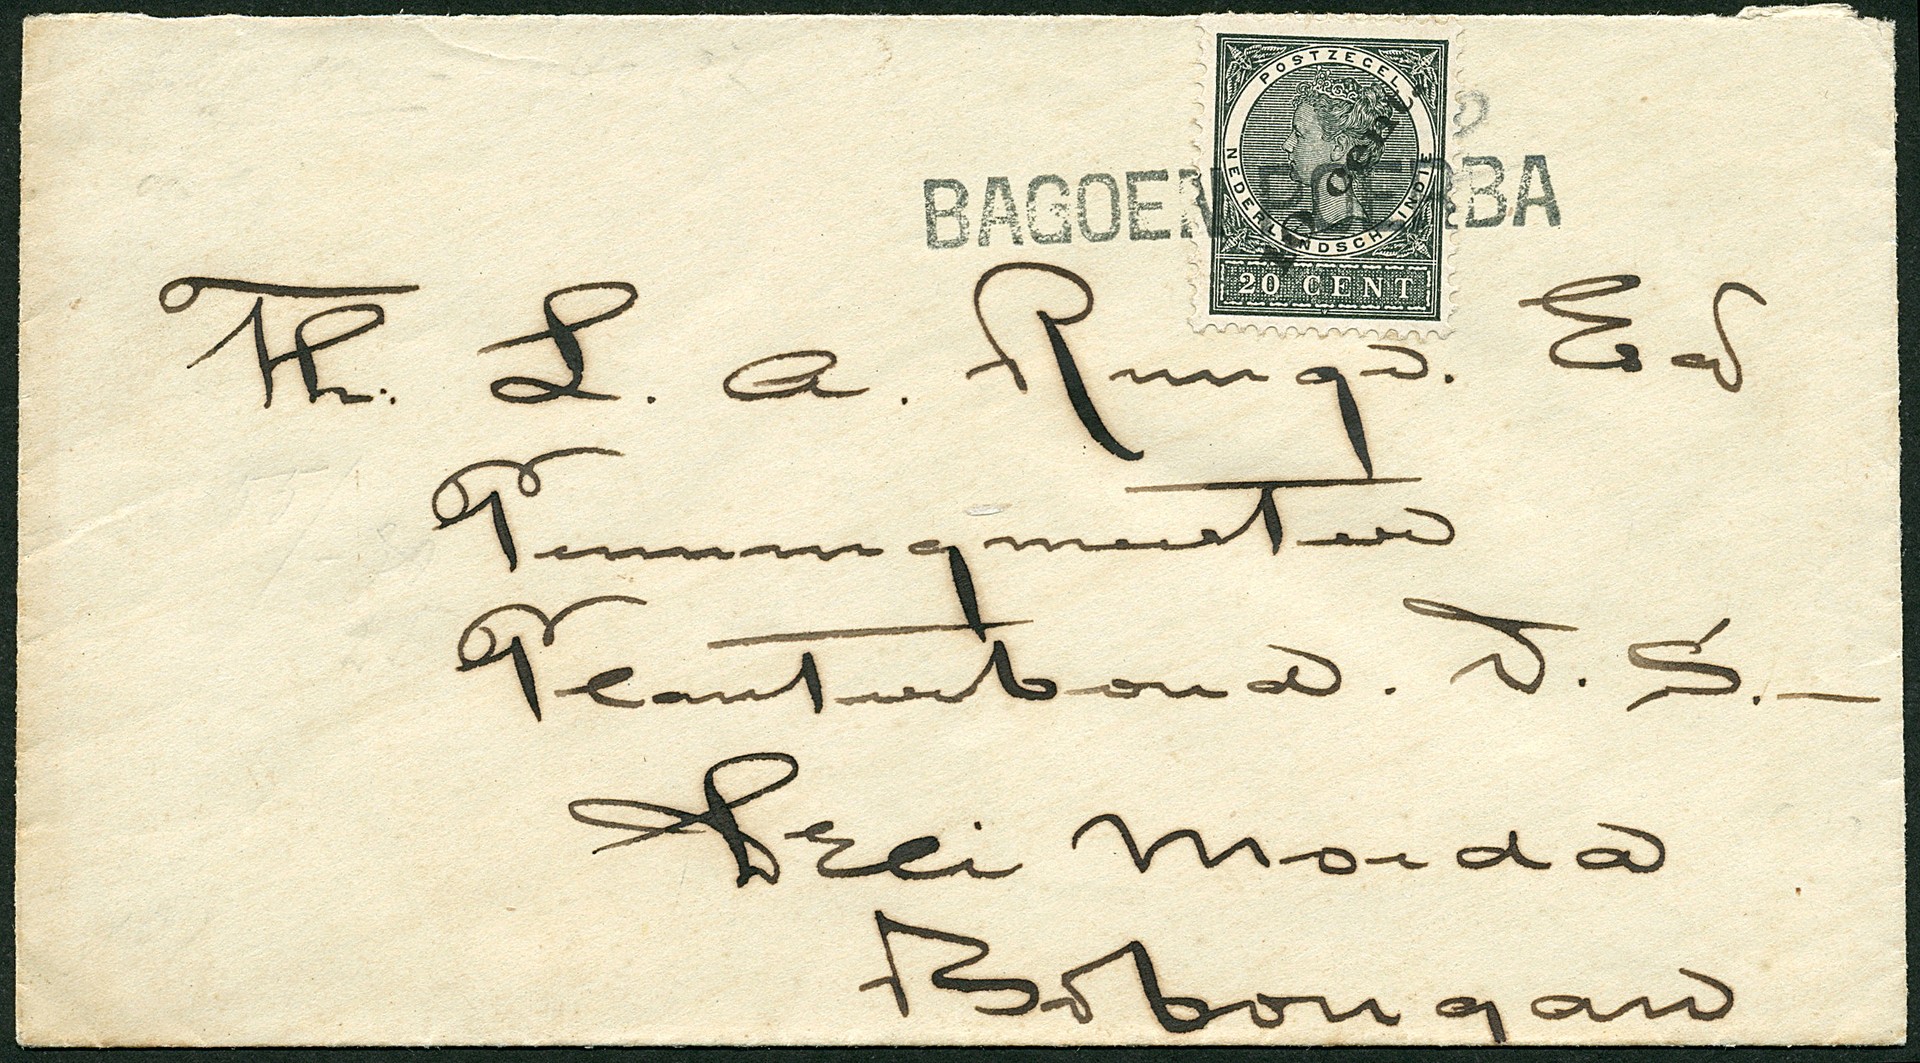 POSTZEGEL
NEDERLANDSCH-INDIE
cent
20 CENT
BAGOEN POERBA
Th. L. A. Runge. Ed
Penningmeester
Planterbond. D. S. —
Deli Moeda
Bobongan